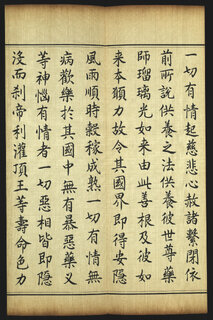 一切有情起慈悲心赦諸繫閉依
前所說供養之法供養彼世尊藥
師瑠璃光如来由此善根及彼如
来本願力故令其國界即得安隱
風雨順時穀稼成熟一切有情無
病歡樂於其國中無有暴惡藥叉
等神惱有情者一切惡相皆即隱
沒而剎帝利灌頂王等壽命色力